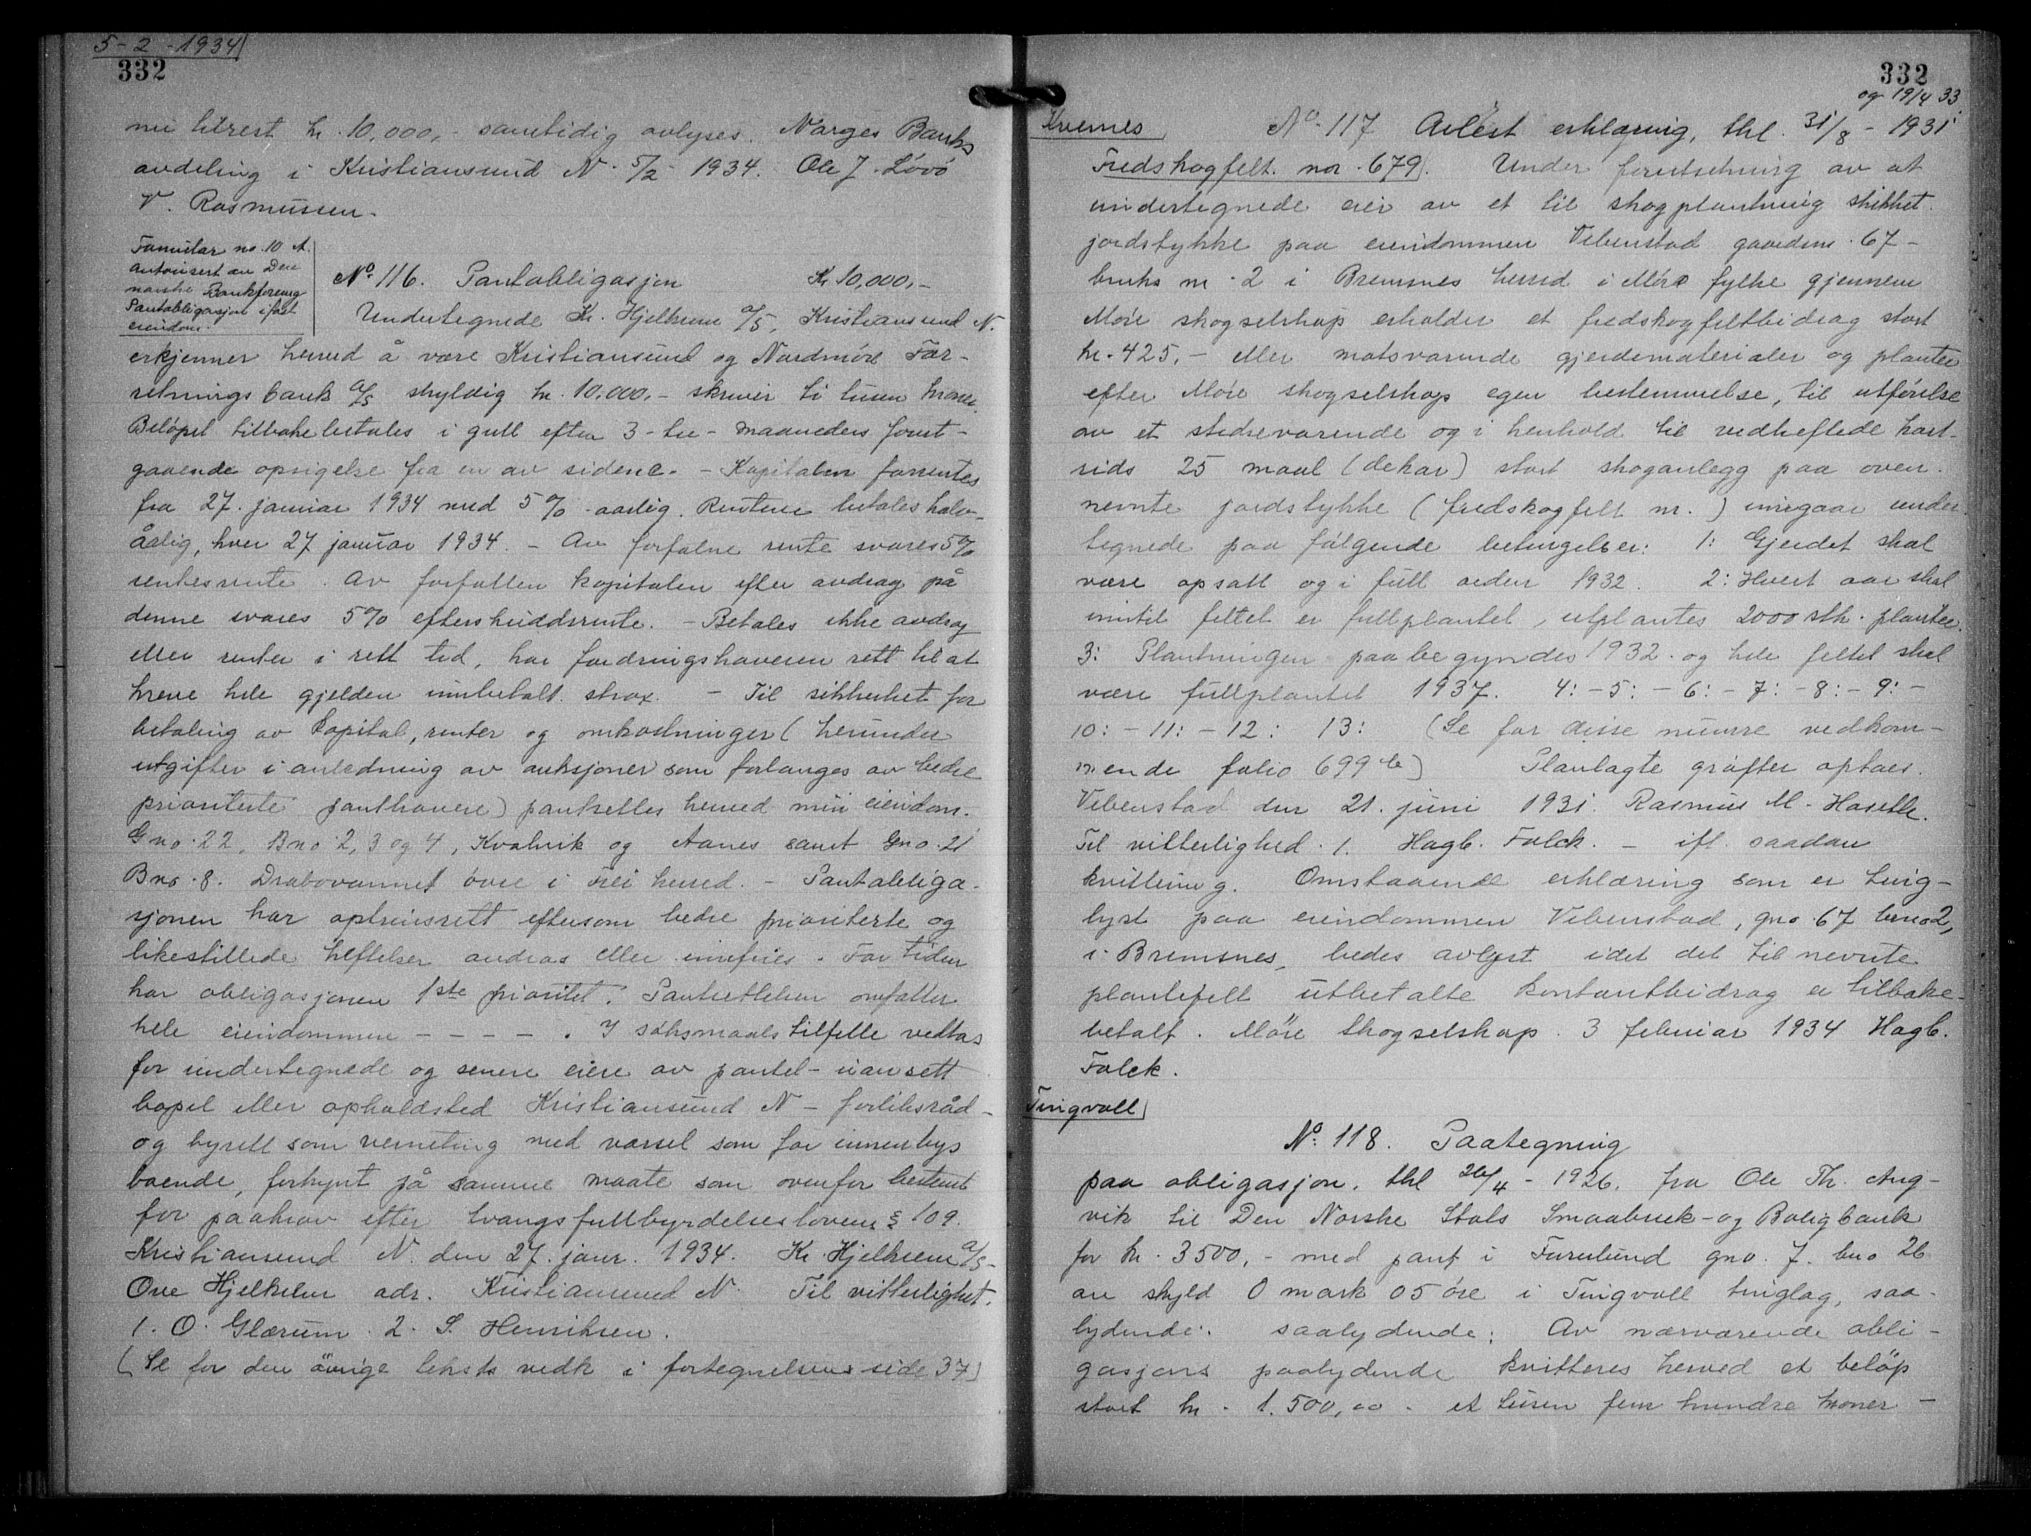 5-2-1934
332
nu litrest kr. 10,000,- samtidig avlyses. Norges Banks
avdeling i Kristiansund N. 5/2 - 1934. Ole J. Lövö
V. Rasmussen.
Formular no. 10 A.
autorisert av Den
norske Bankforening
Pantobligasjon i fast
eiendom.
No. 116. Pantobligasjon Kr. 10,000,-
Undertegnede Kr. Hjelkrem A/S, Kristiansund N.
erkjenner herved å være Kristiansund og Nordmöre For-
retningsbank A/S skyldig kr. 10.000,- skriver ti tusen kroner.
Belöpet tilbakebetales i gull efter 3-tre- maaneders forut-
gaaende opsigelse fra en av sidene. - Kapitalen forrentes
fra 27. januar 1934 med 5% aarlig. Rentene betales halv-
årlig, hver 27 januar 1934. - Av forfalne rente svares 5%
rentesrente. Av forfallen kapitalen efter avdrag på
denne svares 5% efterskuddsrente. - Betales ikke avdrag
eller renter i rett tid, har fordringshaveren rett til at
kreve hele gjelden innbetalt strax. - Til sikkerhet for
betaling av kapital, renter og omkostninger (herunder
utgifter i anledning av auksjoner som forlanges av bedre
prioriterte panthavere) pantsettes herved min eiendom.
Gno. 22, Bno. 2, 3 og 4, Kvalvik og Aanes samt Gno. 21
Bno. 8. Drabovannet övre i Frei herred. - Pantobliga-
sjonen har optrinsrett eftersom bedre prioriterte og
likestillede heftelser avdras eller innfries. For tiden
har obligasjonen 1ste prioritet. Pantsettelsen omfatter
hele eiendommen - - - - . I söksmaalstilfelle vedtas
for undertegnede og senere eiere av pantet - uansett
bopel eller opholdsted Kristiansund N - forliksråd -
og byrett som verneting med varsel som for innenbys
boende, forkynt på samme maate som ovenfor bestemt
for paakrav efter tvangsfullbyrdelseslovens § 109.
Kristiansund N. den 27. januar. 1934. Kr. Hjelkrem A/S -
Ove Hjelkrem adr. Kristiansund N. Til vitterlighet.
1. O. Glærum. 2. S. Henriksen.
(Se for den övrige tekst vedk i fortegnelsens side 37)
332
og 19/4 33
Kvernes No. 117 Avlest erklæring, thl. 31/8 - 1931
Fredskogfelt. nor. 679. Under forutsetning av at
undertegnede eier av et til skogplantning skikket
jordstykke paa eiendommen Vebenstad gaardsnr. 67-
bruks nr. 2 i Bremsnes herred i Möre fylke gjennem
Möre skogselskap erholder et fredskogfeltbidrag stort
kr. 425,- eller motsvarende gjerdematerialer og planter
efter Möre skogselskaps egen bestemmelse, til utförelse
av et stedsevarende og i henhold til vedheftede kart-
rids 25 maal (dekar) stort skoganlegg paa oven-
nevnte jordstykke (fredskogfelt nr. ) inngaar under-
tegnede paa fölgende betingelser: 1: Gjerdet skal
være opsatt og i full orden 1932. 2: Hvert aar skal
inntil feltet er fullplantet, utplantes 2000 stk. planter.
3: Plantningen paabegyndes 1932. og hele feltet skal
være fullplantet 1937. 4: - 5: - 6: - 7: - 8: - 9: -
10: - 11: - 12: 13: (Se for disse numre vedkom-
mende folio 699 b) Planlagte gröfter optaes.
Vebenstad den 21. juni 1931. Rasmus M. Haselle.
Til vitterlighed. 1. Hagb. Falck. - ifl. saadan
kvittering. Omstaaende erklæring som er ting-
lyst paa eiendommen Vebenstad, gno. 67 bno 2,
i Bremsnes, bedes avlyst idet det til nevnte
plantefelt utbetalte kontantbidrag er tilbake-
betalt. Möre Skogselskap. 3 februar 1934 Hagb.
Falck.
Tingvoll
No. 118. Paategning
paa obligasjon, thl 26/4 - 1926. fra Ole Th. Ang-
vik til Den Norske Stats Smaabruk- og Boligbank
for kr. 3500,- med pant i Furulund gno. 7. bno 26
av skyld 0 mark 05 öre i Tingvoll tinglag, saa-
lydende: saalydende: Av nærværende obli-
gasjons paalydende kvitteres herved et belöp
stort kr. 1.500,00 - et tusen fem hundre kroner -